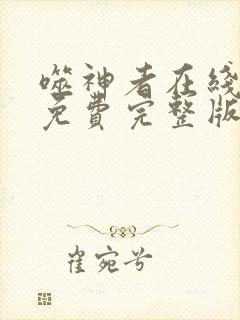 噬神者在线
免費完整版
崔宛兮